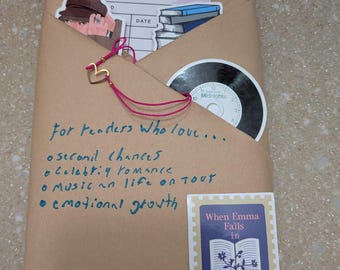 DATE
Midnights
For readers who love...
second chances
celebrity romance
musician life on tour
emotional growth
When Emma
Falls
in